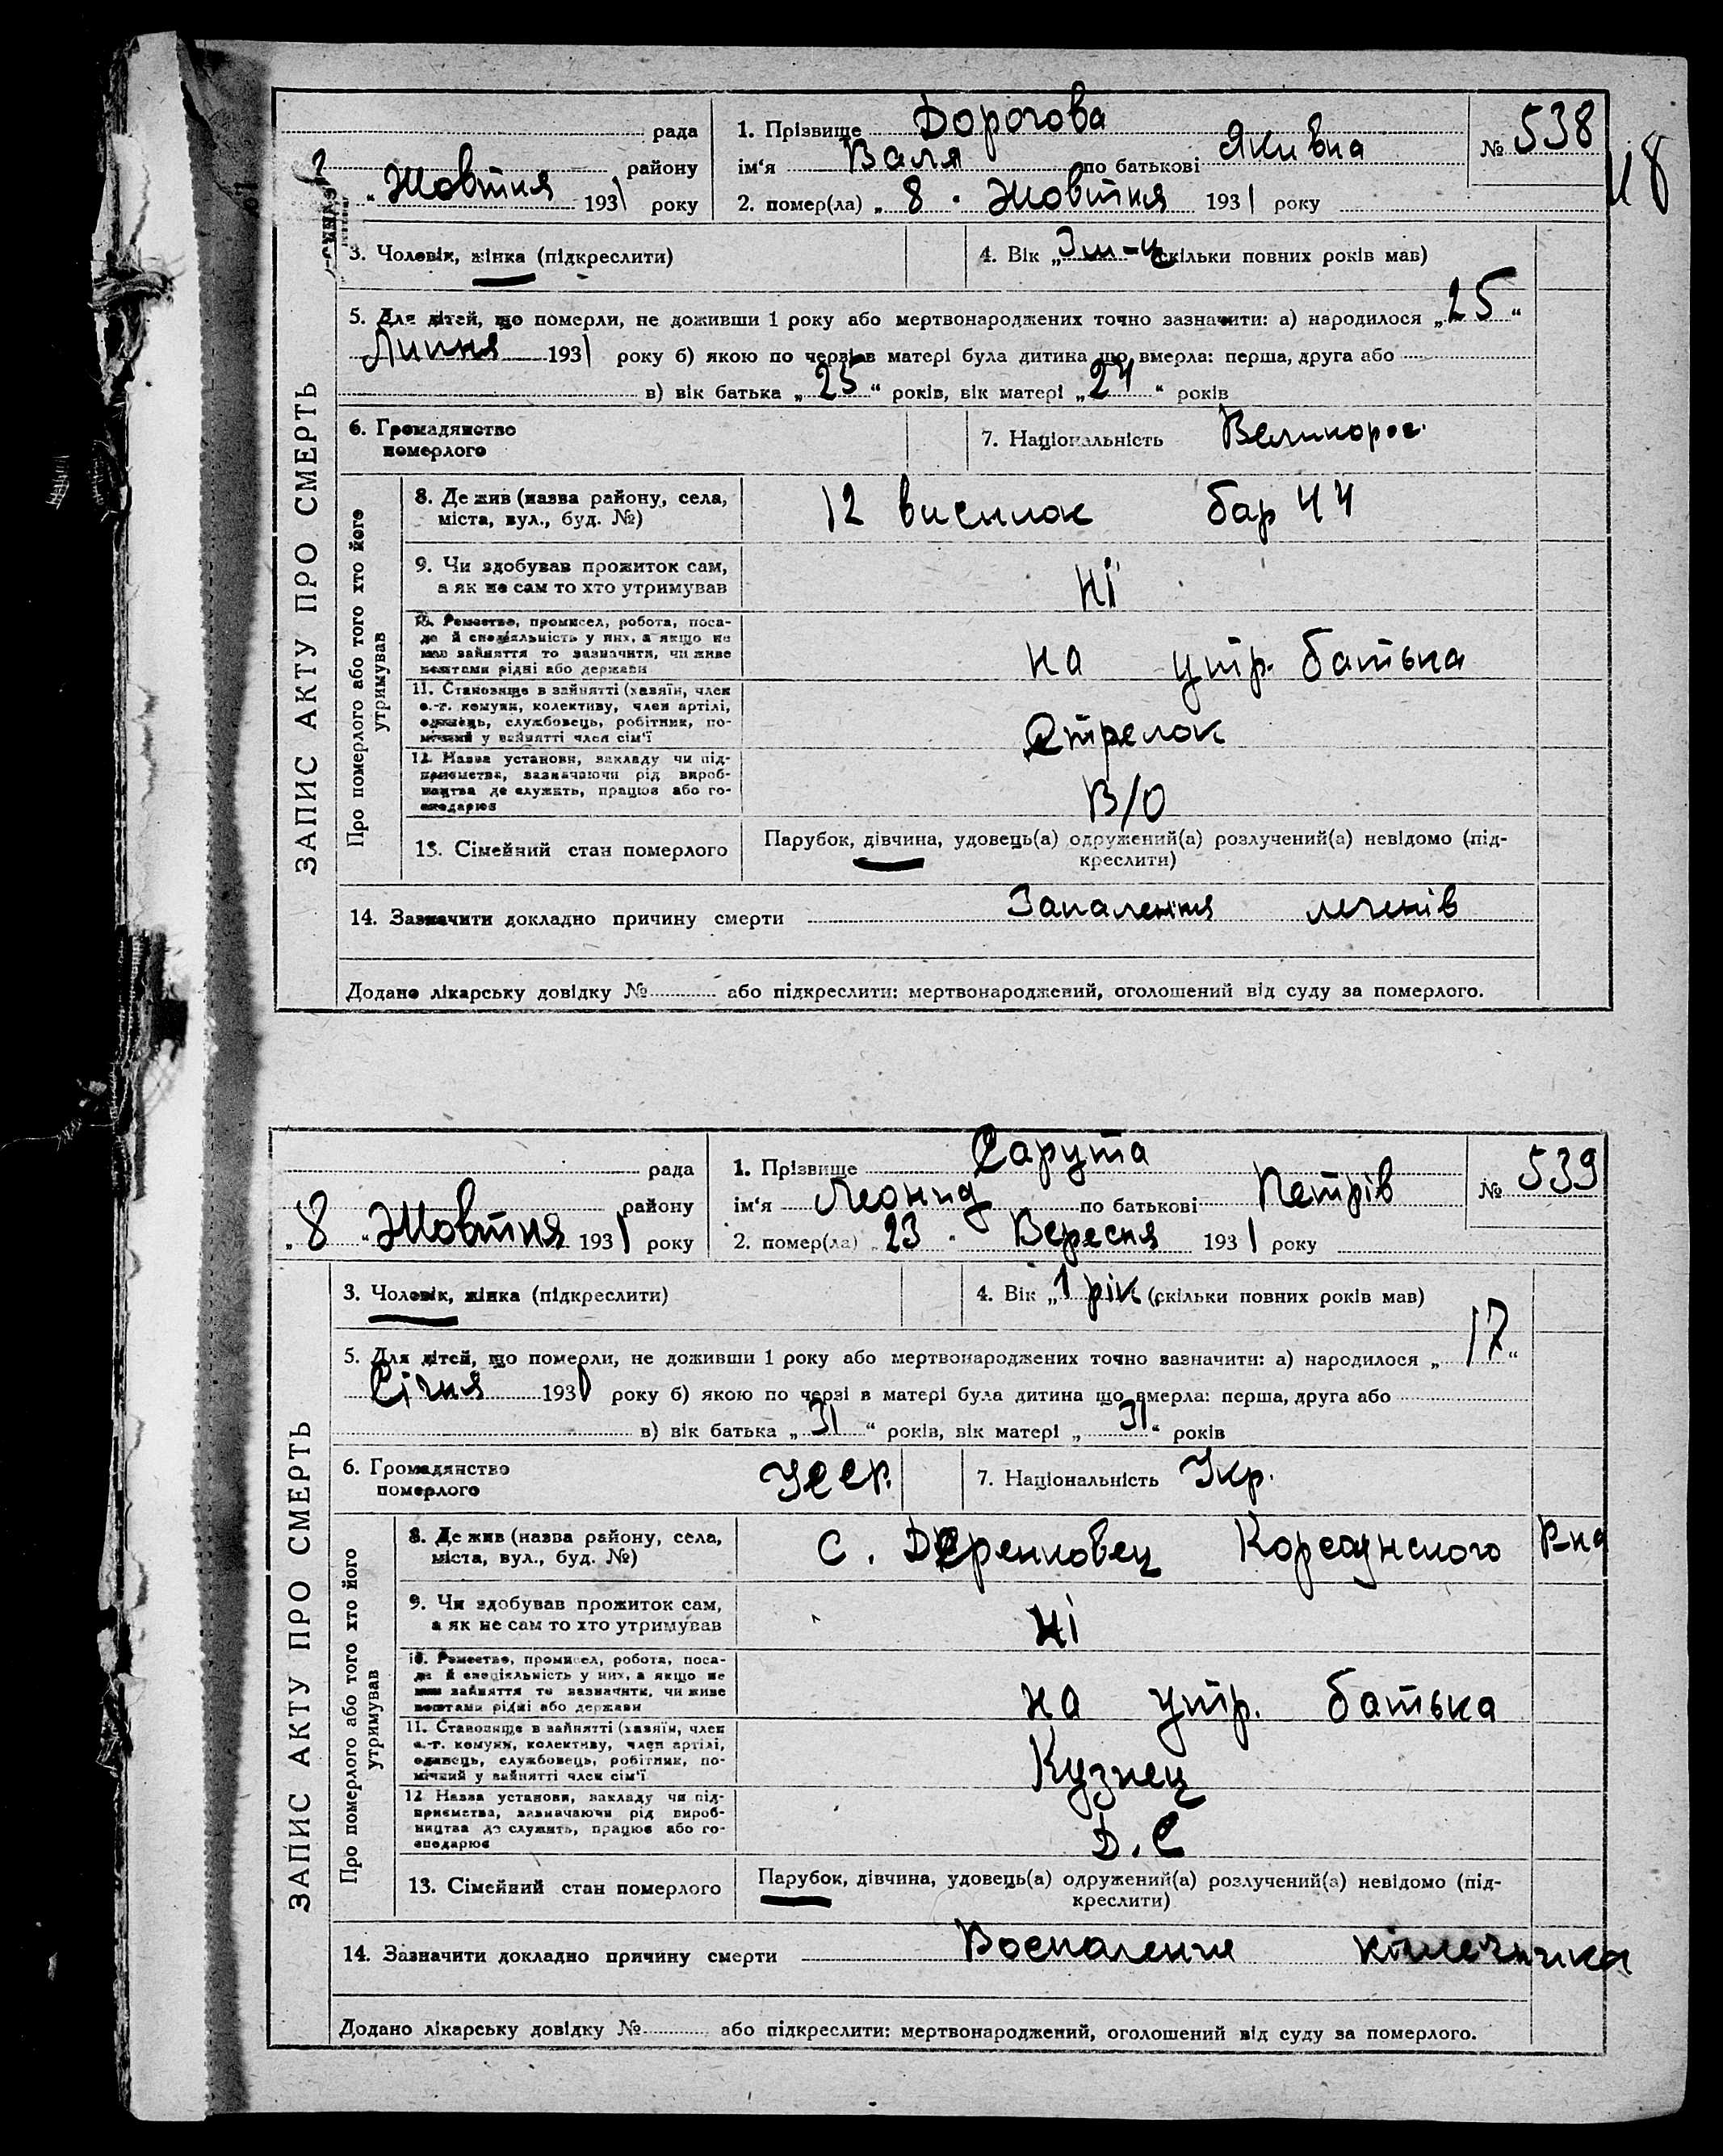 рада
району
„ “ Жовтня 1931 року
1. Прізвище Дорогова
ім‘я Валя по батькові Якивна
2. помер(ла) „ 8 “ Жовтня 1931 року
№ 538
118
3. Чоловік, жінка (підкреслити)
4. Вік „3 м-ц“ (скільки повних років мав)
5. Для дітей, що померли, не доживши 1 року або мертвонароджених точно зазначити: а) народилося „25“
Липня 1931 року б) якою по черзі в матері була дитина що вмерла: перша, друга або
в) вік батька „25“ років, вік матері „24“ років
6. Громадянство
померлого
7. Національність Великорос.
ЗАПИС АКТУ ПРО СМЕРТЬ
Про померлого або того хто його
утримував
8. Де жив (назва району, села,
міста, вул., буд. №)
12 висилок бар 44
9. Чи здобував прожиток сам,
а як не сам то хто утримував
Ні
10. Ремество, промисел, робота, поса-
да й спеціяльність у них, а якщо не
мав зайняття то зазначити, чи живе
коштами рідні або держави
на утр. батька
11. Становище в зайнятті (хазяїн, член
с.-г. комуни, колективу, член артілі,
одинець, службовець, робітник, по-
мічний у зайнятті член сім‘ї
Стрелок
12. Назва установи, закладу чи під-
приємства, зазначаючи рід вироб-
ництва де служить, працює або го-
сподарює
В/О
13. Сімейний стан померлого
Парубок, дівчина, удовець(а) одружений(а) розлучений(а) невідомо (під-
креслити)
14. Зазначити докладно причину смерти Запаленіня легенів
Додано лікарську довідку № або підкреслити: мертвонароджений, оголошений від суду за померлого.
рада
району
„8“ Жовтня 1931 року
1. Прізвище Сарута
ім‘я Леонид по батькові Петрів
2. помер(ла) „23“ Вересня 1931 року
№ 539
3. Чоловік, жінка (підкреслити)
4. Вік „1 рік (скільки повних років мав)
5. Для дітей, що померли, не доживши 1 року або мертвонароджених точно зазначити: а) народилося „17“
Січня 1930 року б) якою по черзі в матері була дитина що вмерла: перша, друга або
в) вік батька „31“ років, вік матері „31“ років
6. Громадянство
померлого
УССР.
7. Національність Укр.
ЗАПИС АКТУ ПРО СМЕРТЬ
Про померлого або того хто його
утримував
8. Де жив (назва району, села,
міста, вул., буд. №)
с. Деренковец Корсунского Рна
9. Чи здобував прожиток сам,
а як не сам то хто утримував
Ні
10. Ремество, промисел, робота, поса-
да й спеціяльність у них, а якщо не
мав зайняття то зазначити, чи живе
коштами рідні або держави
на утр. батька
11. Становище в зайнятті (хазяїн, член
с.-г. комуни, колективу, член артілі,
одинець, службовець, робітник, по-
мічний у зайнятті член сім‘ї
Кузнец
12 Назва установи, закладу чи під-
приємства, зазначаючи рід вироб-
ництва де служить, працює або го-
сподарює
Д.С
13. Сімейний стан померлого
Парубок, дівчина, удовець(а) одружений(а) розлучений(а) невідомо (під-
креслити)
14. Зазначити докладно причину смерти Воспаление
Додано лікарську довідку № або підкреслити: мертвонароджений, оголошений від суду за померлого.